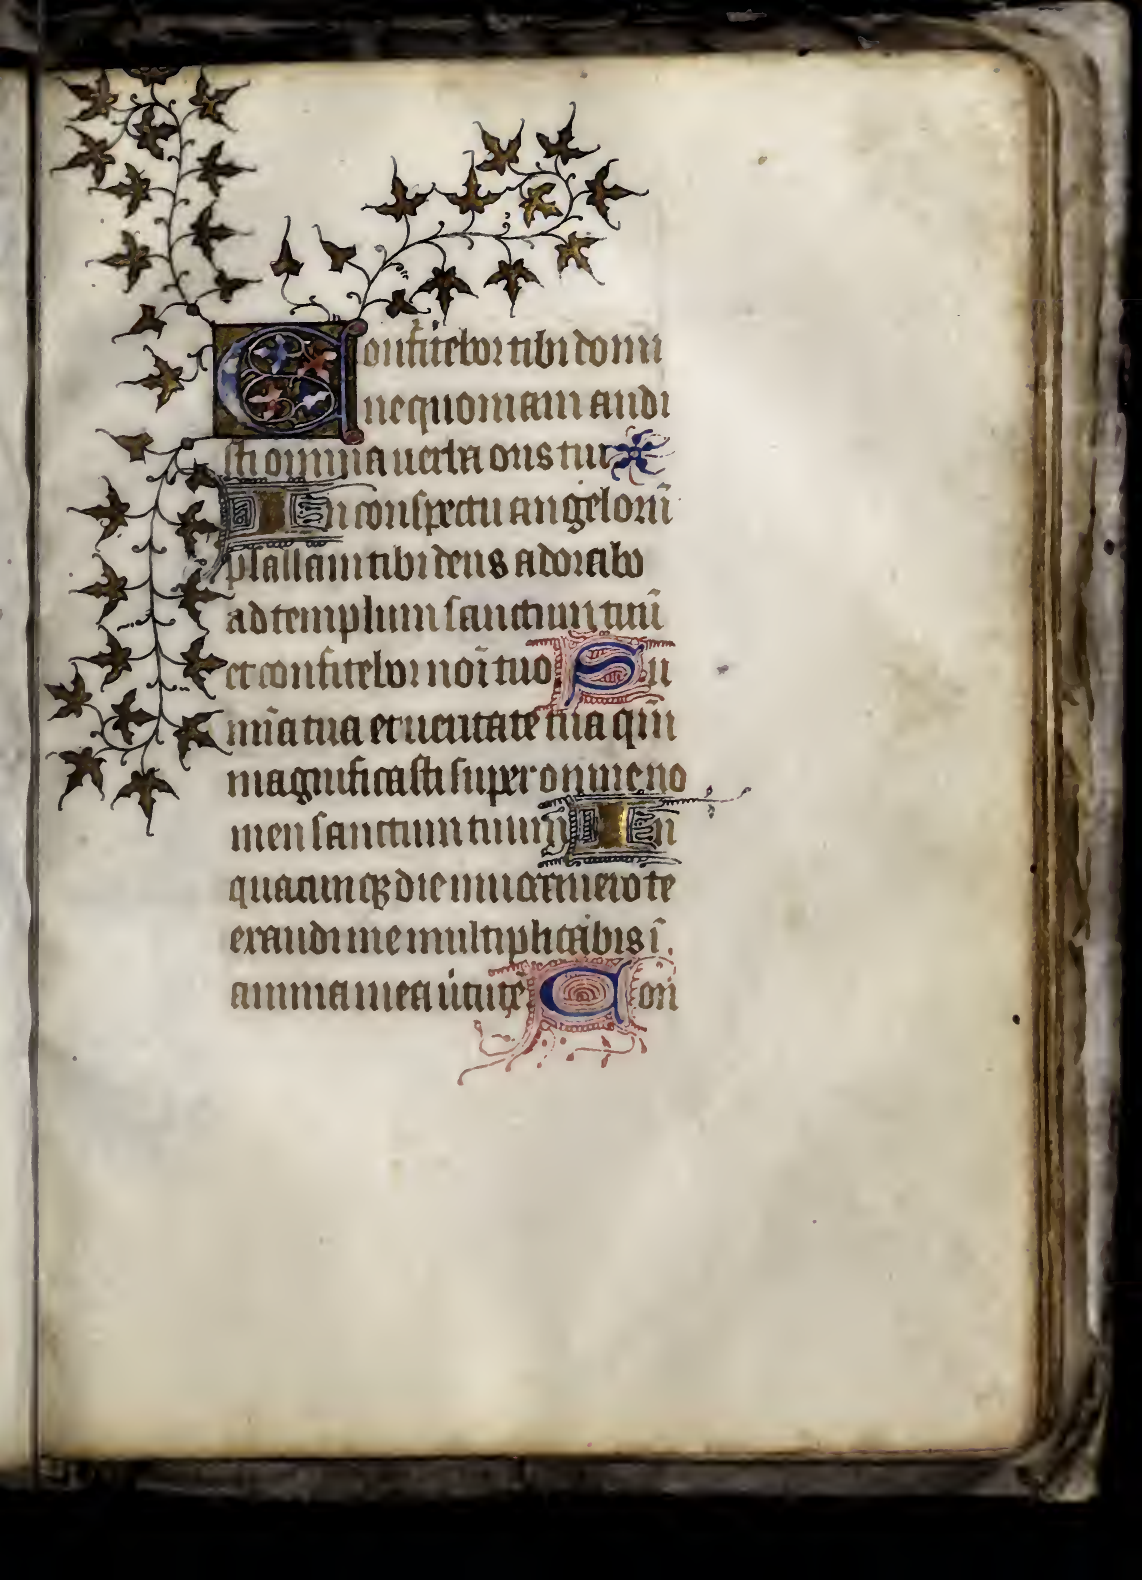 Confitebor tibi domi
ne quoniam audi
sti omnia uerba oris tui
In conspectu angeloru̅
psallam tibi deus adorabo
ad templum sanctum tuu̅
et confitebor noi̅ tuo Su
mi̅a tua et ueritate tua qm̅
magnificasti super omne no
men sanctum tuum In
quacunqꝫ die inuocauero te
exaudi me multiplicabis i̅
anima mea ui̅tute̅ Con